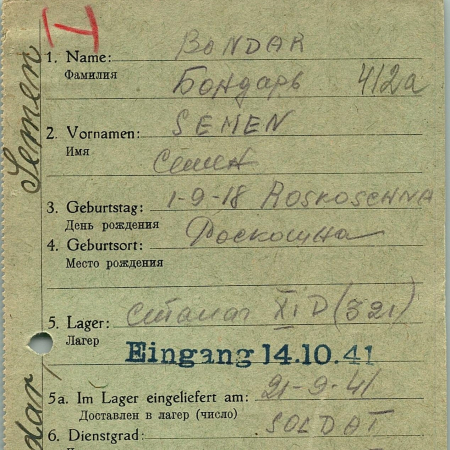 I
1. Name: BONDAR
Фамилия Бондарь 412a
2. Vornamen: SEMEN
Имя Семен
3. Geburtstag: 1-9-18 ROSKOSCHNA
День рождения
4. Geburtsort: Роскошна
Место рождения
5. Lager: Сталаг XI D (321)
Лагер
Eingang 14.10.41
5a. Im Lager eingeliefert am: 21-9-41
Доставлен в лагер (число)
6. Dienstgrad: SOLDAT
Semen
dar